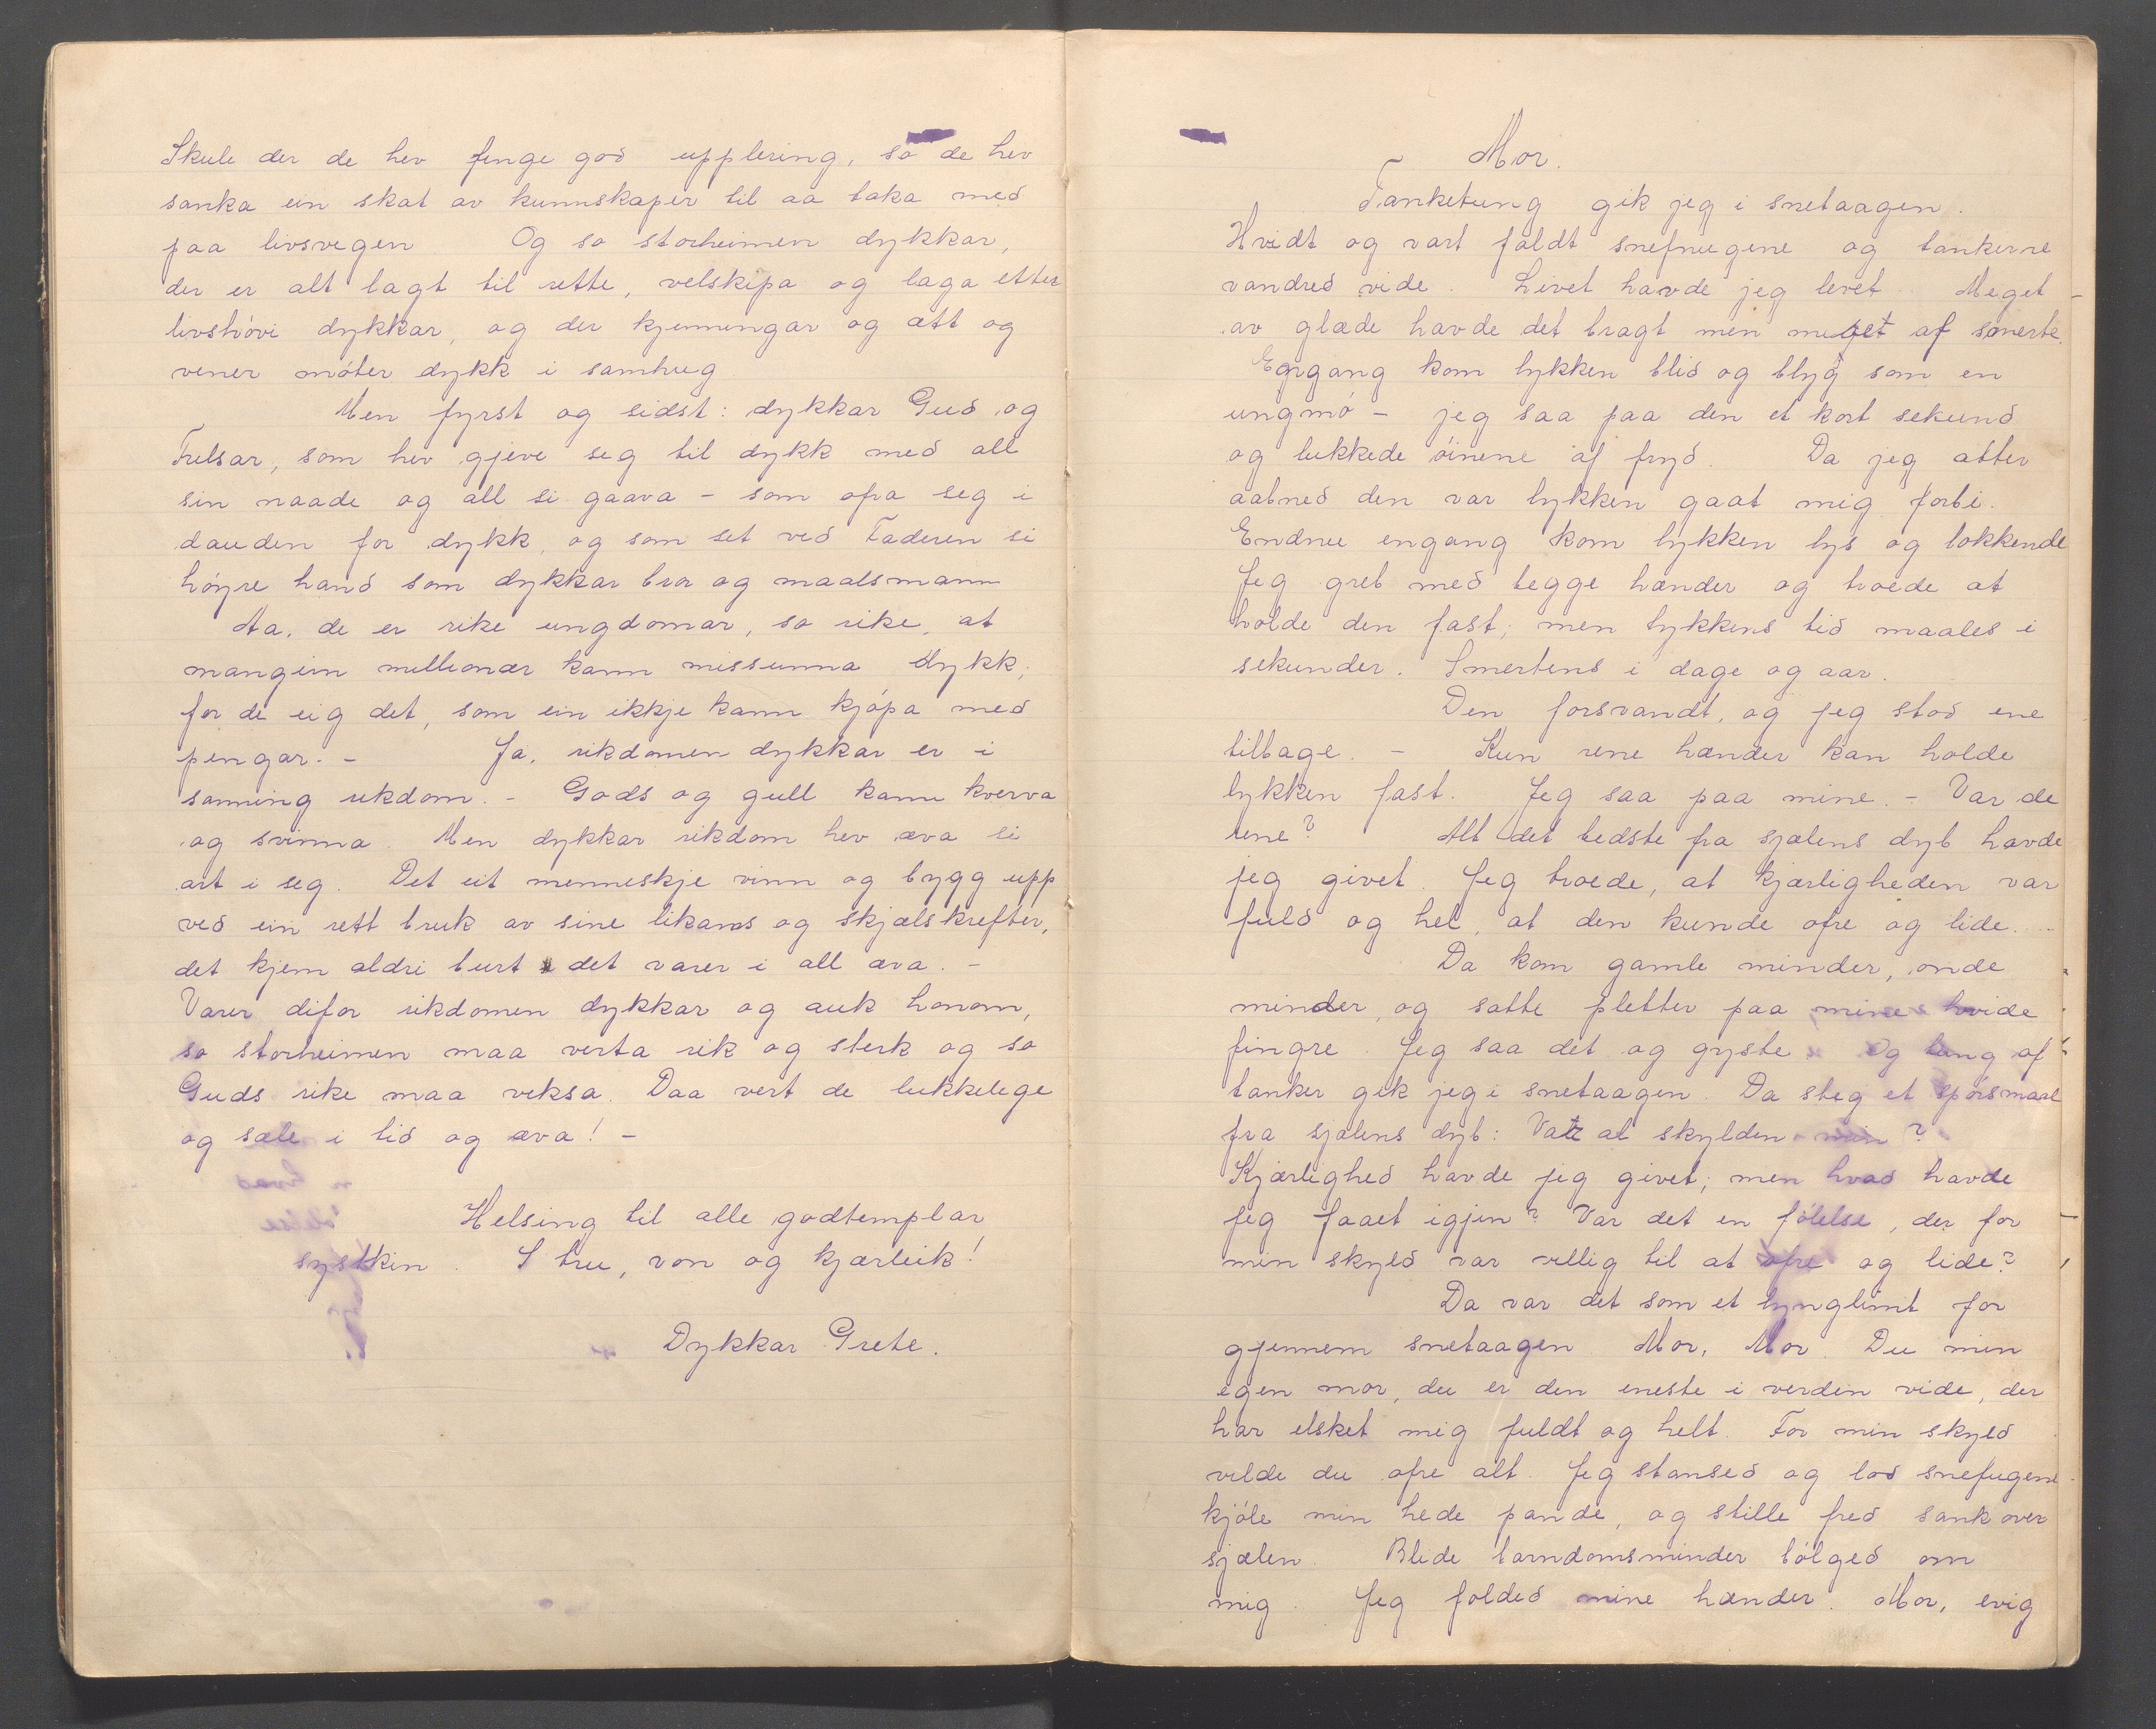 Skule der de hev fenge god upplering, so de hev
sanka ein skat av kunnskaper til aa taka med
paa livsvegen Og so storheimen dykkar,
der er alt lagt til rette, velskipa og laga etter
livshövi dykkar, og der kjenningar og ætt og
vener möter dykk i samhug
Men fyrst og sidst: dykkar Gud og
Frelsar, som hev gjeve seg til dykk med all
sin naade og all si gaava - som ofra seg i
dauden for dykk, og som set ved Faderen si
höyre hand som dykkar bror og maalsmann
Aa, de er rike ungdomar, so rike, at
mangein millionær kann missunna dykk;
for de eig det, som ein ikkje kann kjöpa med
pengar. - Ja, rikdomen dykkar er i
sanning rikdom. - Gods og gull kann kverva
og svinna. Men dykkar rikdom hev æva si
art i seg. Det eit menneskje vinn og bygg upp
ved ein rett bruk av sine likams og skjælskrefter,
det kjem aldri burt det varer i all æva. -
Varer difor rikdomen dykkar og auk honom,
so storheimen maa verta rik og sterk og so
Guds rike maa veksa. Daa vert de lukkelege
og sæle i tid og æva! -
Helsing til alle godtemplar
systkin. I tru, von og kjærleik!
Dykkar Grete.
Mor.
Tanketung gik jeg i snetaagen.
Hvidt og vart faldt snefnugene og tankerne
vandred vide. Livet havde jeg levet. Meget
av glæde havde det bragt men meget af smerte.
Engang kom lykken blid og blyg som en
ungmö - jeg saa paa den et kort sekund
og lukkede öinene af fryd. Da jeg atter
aabned den var lykken gaat mig forbi.
Endnu engang kom lykken lys og lokkende
Jeg greb med begge hænder og troede at
holde den fast; men lykkens tid maales i
sekunder. Smertens i dage og aar.
Den forsvandt, og jeg stod ene
tilbage. - Kun rene hænder kan holde
lykken fast. Jeg saa paa mine. - Var de
rene? Alt det bedste fra sjælens dyb havde
jeg givet. Jeg troede, at kjærligheden var
fuld og hel, at den kunde ofre og lide.
Da kom gamle minder, onde
minder, og satte pletter paa mine hvide
fingre. Jeg saa det og gyste. Og tung af
tanker gik jeg i snetaagen. Da steg et spörsmaal
fra sjælens dyb: Var al skylden min?
Kjærlighed havde jeg givet; men hvad havde
jeg faaet igjen? Var det en fölelse, der for
min skyld var villig til at ofre og lide?
Da var det som et lynglimt for
gjennem snetaagen. Mor, Mor. Du min
egen mor, du er den eneste i verden vide, der
har elsket mig fuldt og helt. For min skyld
vilde du ofre alt. Jeg stansed og lod snefugene
kjöle min hede pande, og stille fred sank over
sjælen. Blide barndomsminder bölged om
mig. Jeg folded mine hænder. Mor, evig